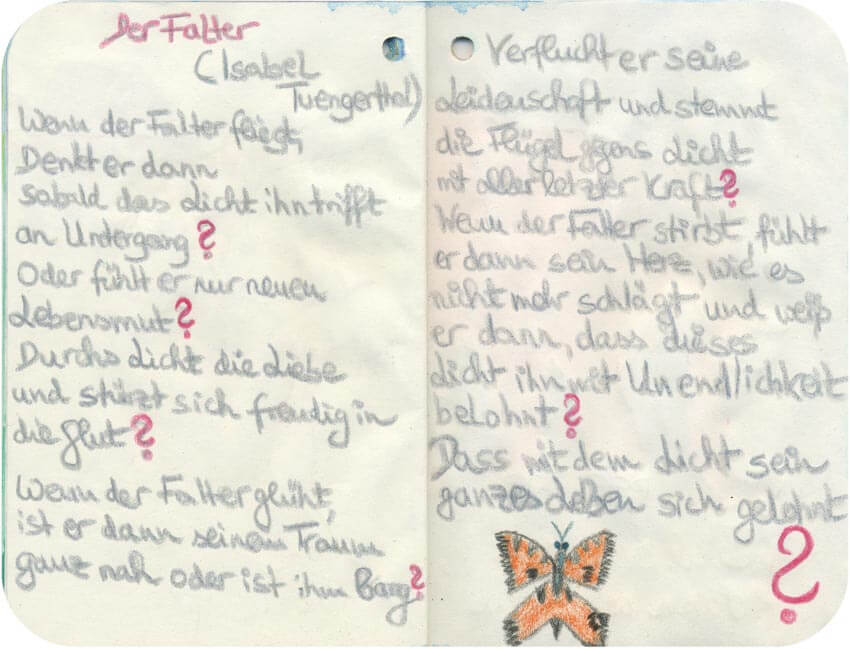 Der Falter
(Isabel
Tuengerthal)
Wenn der Falter fliegt,
Denkt er dann
sobald das Licht ihn trifft
an Untergang?
Oder fühlt er nur neuen
Lebensmut?
Durchs Licht die Liebe
und stürzt sich freudig in
die Glut?
Wenn der Falter glüht,
ist er dann seinem Traum
ganz nah oder ist ihm Bang?
Verflucht er seine
Leidenschaft und stemmt
die Flügel gegens Licht
mit allerletzter Kraft?
Wenn der Falter stirbt, fühlt
er dann sein Herz, wie es
nicht mehr schlägt und weiß
er dann, dass dieses
Licht ihn mit Unendlichkeit
belohnt?
Dass mit dem Licht sein
ganzes Leben sich gelohnt
?